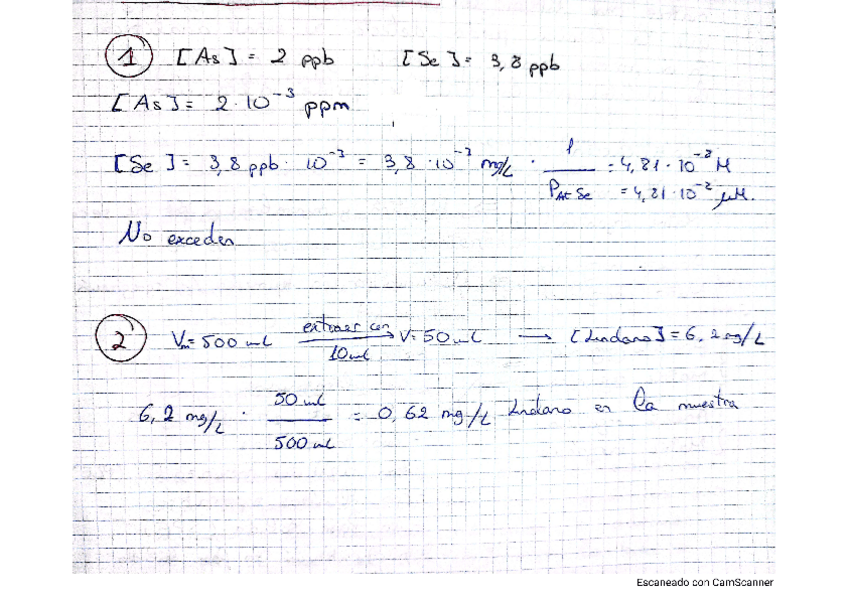 1 [As] = 2 ppb [Se] = 3,8 ppb
[As] = 2·10⁻³ ppm
[Se] = 3,8 ppb · 10⁻³ = 3,8 · 10⁻³ mg/L · 1 / PAt Se = 4,81 · 10⁻⁸ M
= 4,81 · 10⁻² μM.
No exceden
2 Vm = 500 mL extraer con 10 mL V = 50 mL → [Lindano] = 6,2 mg/L
6,2 mg/L · 50 mL / 500 mL = 0,62 mg/L Lindano en la muestra
Escaneado con CamScanner